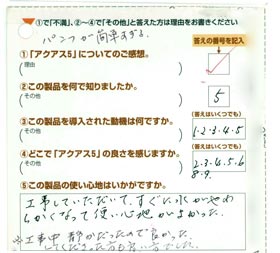 ①で「不満」、②~④で「その他」と答えた方は理由をお書きください
パンフが簡単すぎる。
答えの番号を記入
①「アクアス5」についてのご感想。
(理由
②この製品を何で知りましたか。
(その他
5
③この製品を導入された動機は何ですか。
(答えはいくつでも)
(その他
1・2・3・4・5
④どこで「アクアス5」の良さを感じますか。
(答えはいくつでも)
(その他
2・3・4・5・6
8・9・
⑤この製品の使い心地はいかがですか。
工事していただいて、すぐに水がやわ
らかくなって使い心地がよかった。
※工事中 静かだったので良かった。
してくださった方も良い方でした。